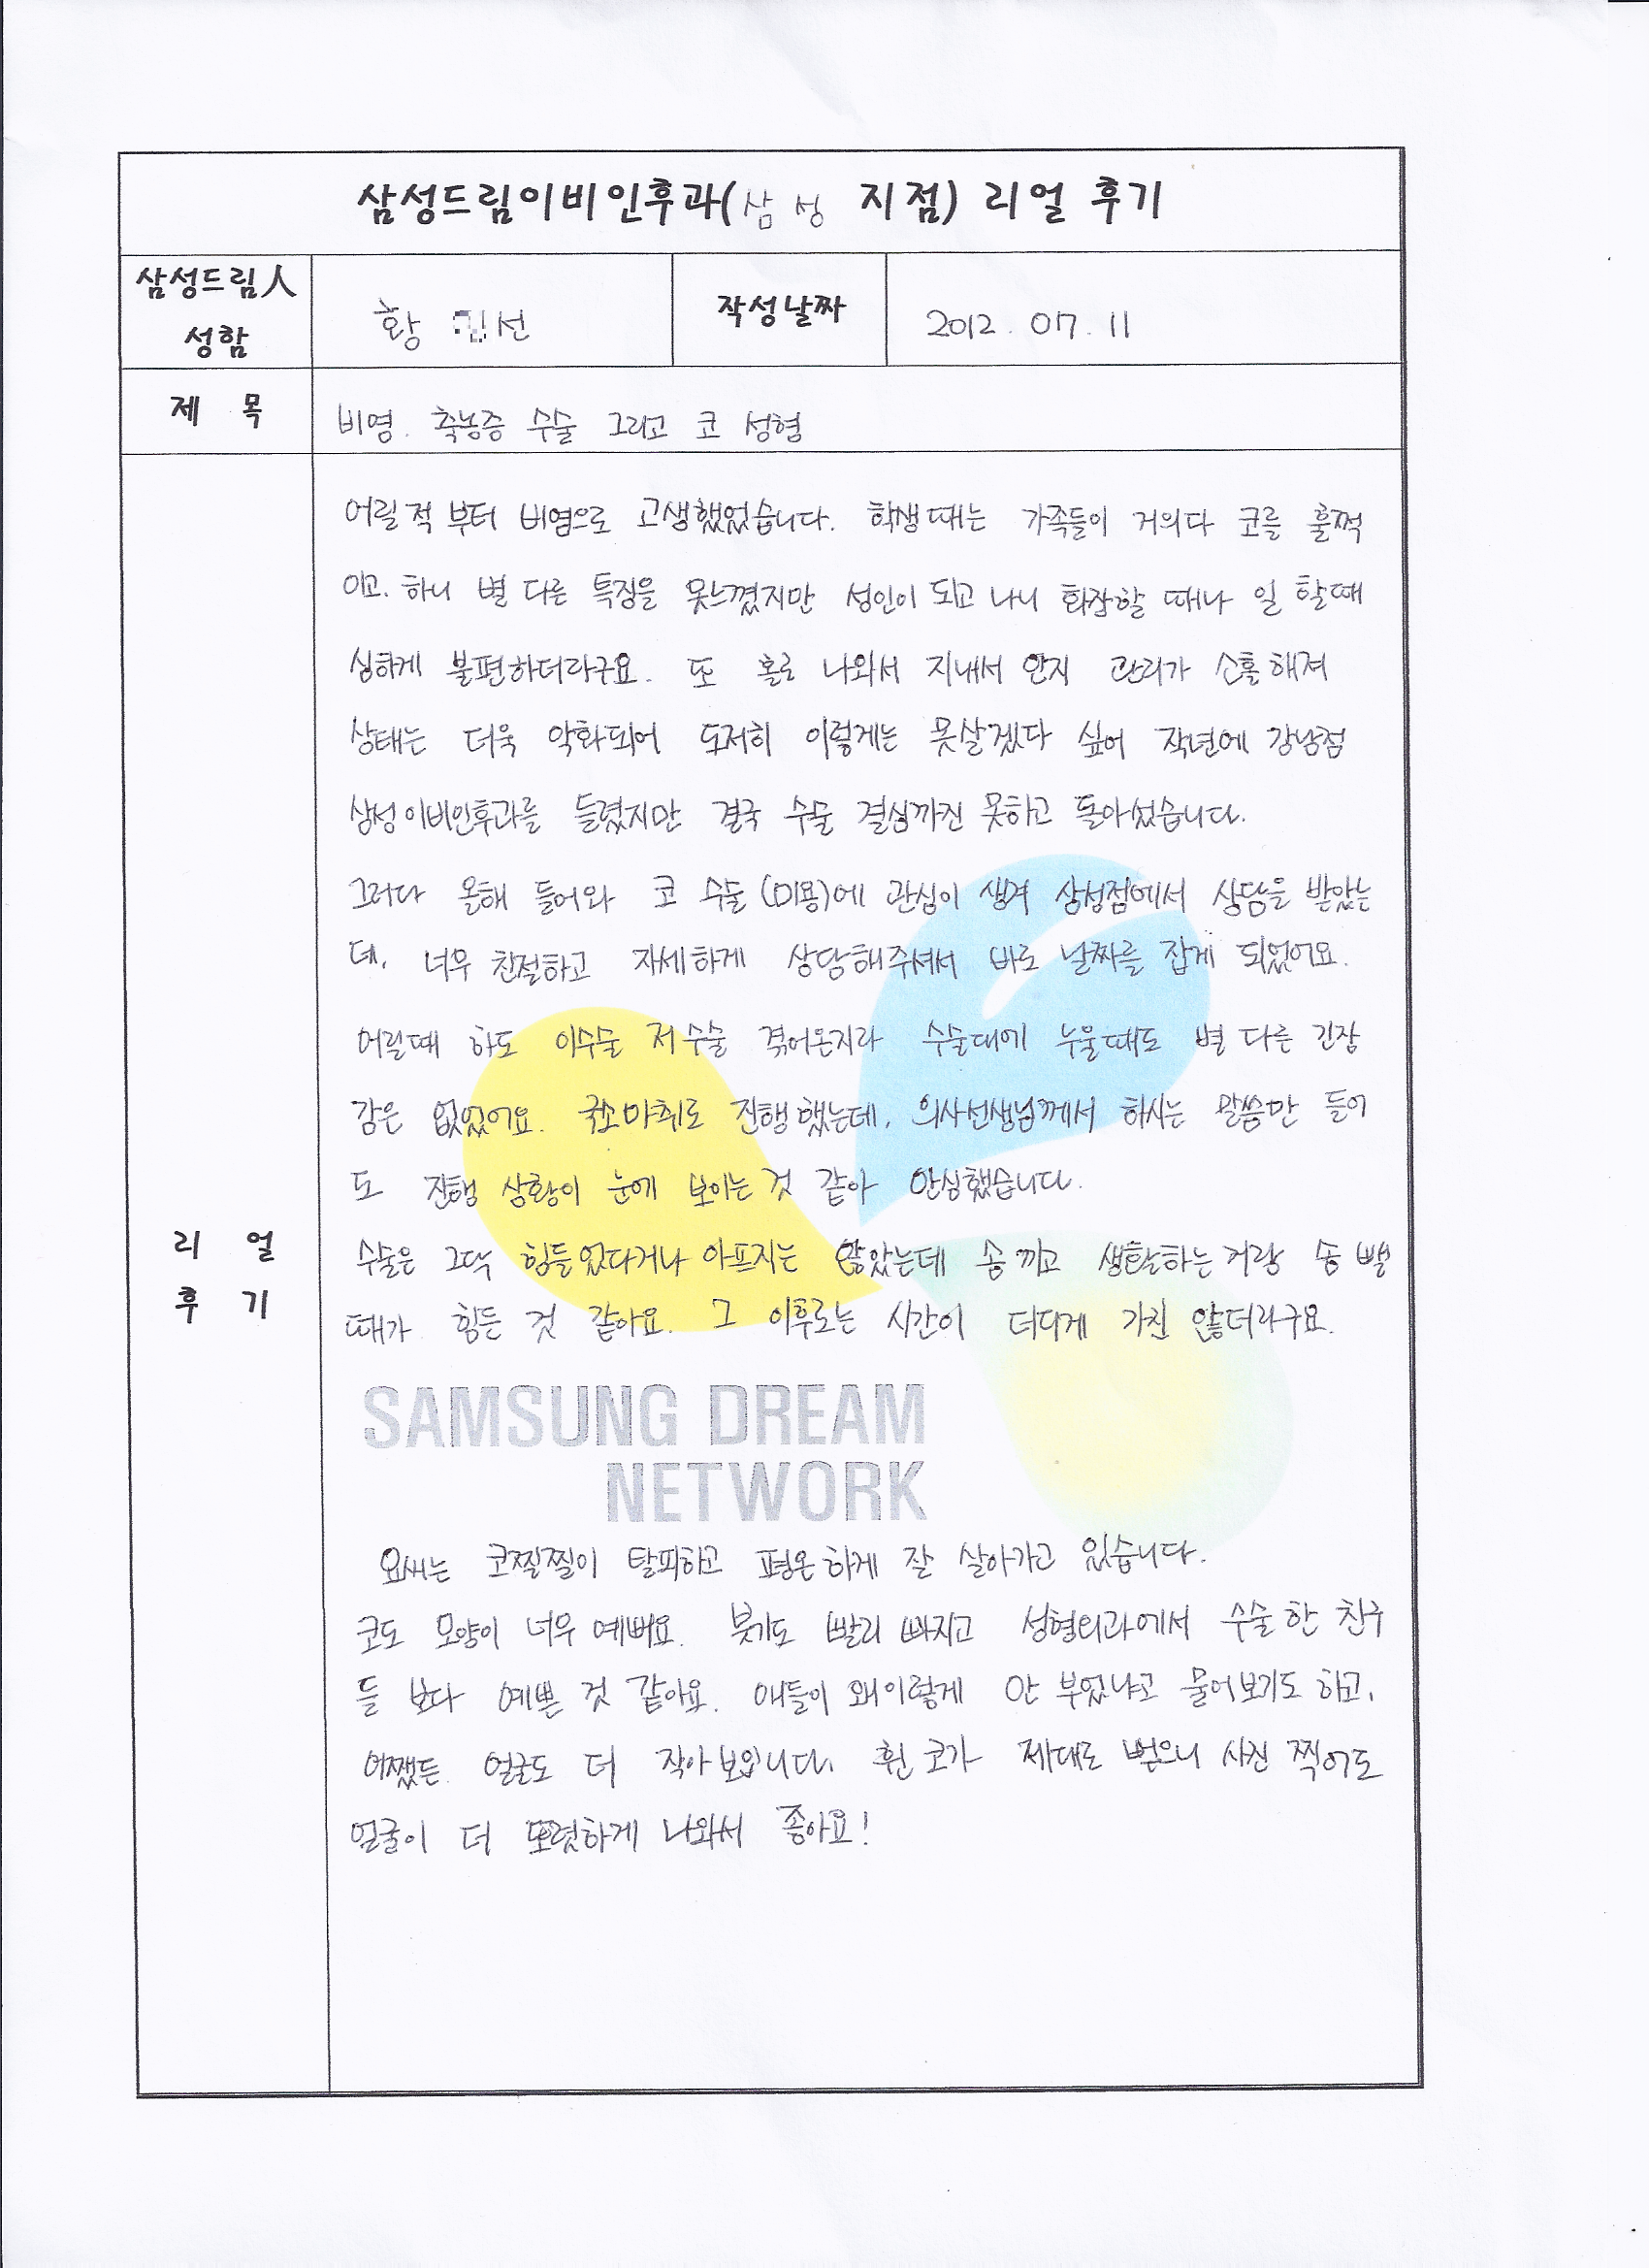 삼성드림이비인후과(삼성 지점) 리얼 후기
삼성드림人
성함
황 선
작성날짜
2012. 07. 11
제 목
비염. 축농증 수술 그리고 코 성형
어릴적 부터 비염으로 고생했었습니다. 학생때는 가족들이 거의다 코를 훌쩍
이고. 하니 별 다른 특징을 못느꼈지만 성인이 되고 나니 화장할 때나 일 할때
심하게 불편하더라구요. 또 홀로 나와서 지내서 인지 관리가 소홀해져
상태는 더욱 악화되어 도저히 이렇게는 못살겠다 싶어 작년에 강남점
삼성이비인후과를 들렸지만 결국 수술 결심까진 못하고 돌아섰습니다.
그러다 올해 들어와 코 수술(미용)에 관심이 생겨 삼성점에서 상담을 받았는
데. 너무 친절하고 자세하게 상담해주셔서 바로 날짜를 잡게 되었어요.
어릴때 하도 이수술 저수술 겪어온지라 수술대에 누울때도 별 다른 긴장
감은 없었어요. 국소마취로 진행했는데, 의사선생님께서 하시는 말씀만 들어
도 진행 상황이 눈에 보이는 것 같아 안심했습니다.
수술은 그닥 힘들었다거나 아프지는 않았는데 솜 끼고 생활하는거랑 솜 뺄
때가 힘든 것 같아요. 그 이후로는 시간이 더디게 가진 않더라구요.
SAMSUNG DREAM
NETWORK
리 얼
후 기
요새는 코찔찔이 탈피하고 평온하게 잘 살아가고 있습니다.
코도 모양이 너무 예뻐요. 붓기도 빨리 빠지고 성형외과에서 수술한 친구
들 보다 예쁜 것 같아요. 애들이 왜이렇게 안 부었냐고 물어보기도 하고,
어쨌든 얼굴도 더 작아보입니다. 휜 코가 제대로 뻗으니 사진 찍어도
얼굴이 더 또렷하게 나와서 좋아요!